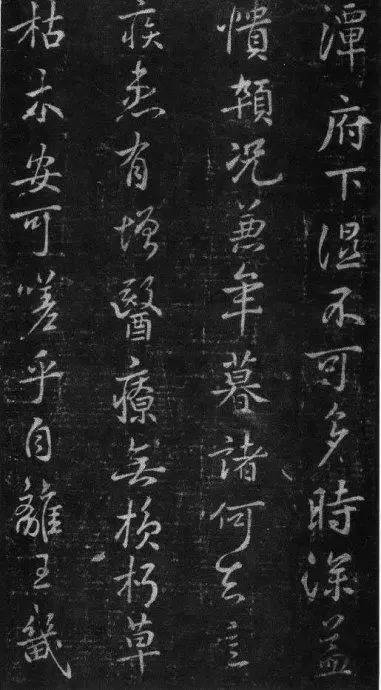 潭府下湿不可多時深益
憒顇況兼年暮諸何足言
疾患有增醫療無損朽草
枯木安可嗟乎自離王畿